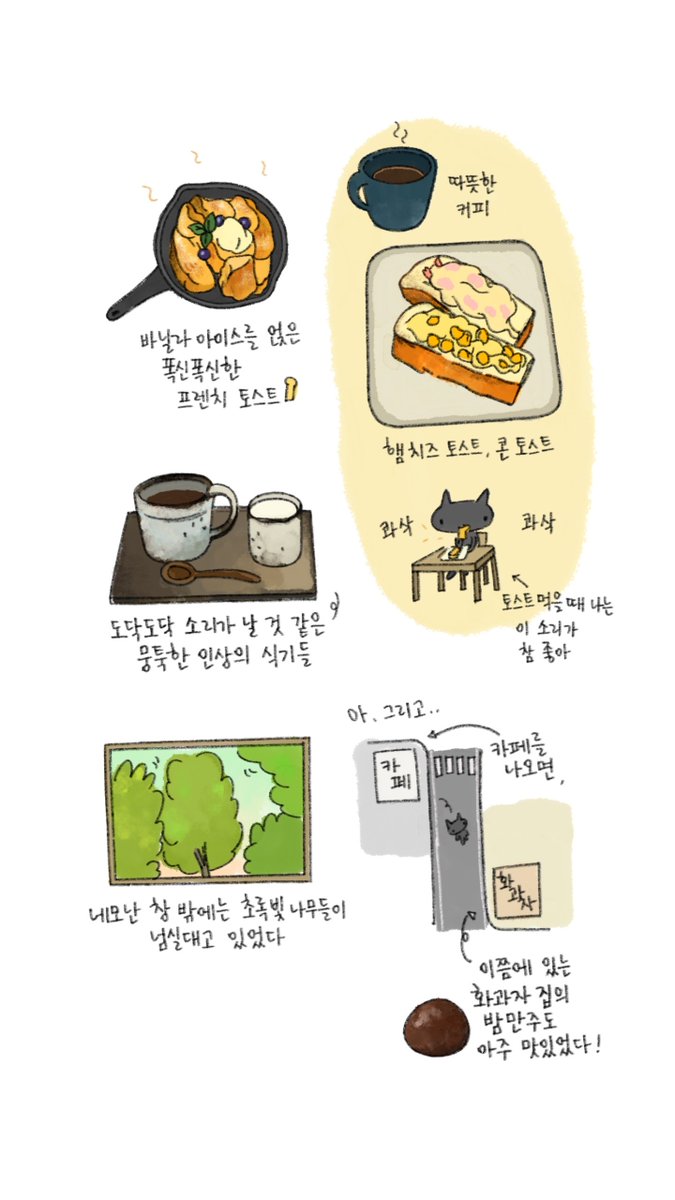 바닐라 아이스를 얹은
폭신폭신한
프렌치 토스트
따뜻한
커피
햄치즈 토스트, 콘 토스트
콰삭
콰삭
토스트 먹을 때 나는
이 소리가
참 좋아
도닥도닥 소리가 날 것 같은
뭉툭한 인상의 식기들
네모난 창 밖에는 초록빛 나무들이
넘실대고 있었다
아, 그리고..
카페를
나오면,
카
페
화
과
자
이쯤에 있는
화과자 집의
밤만주도
아주 맛있었다!